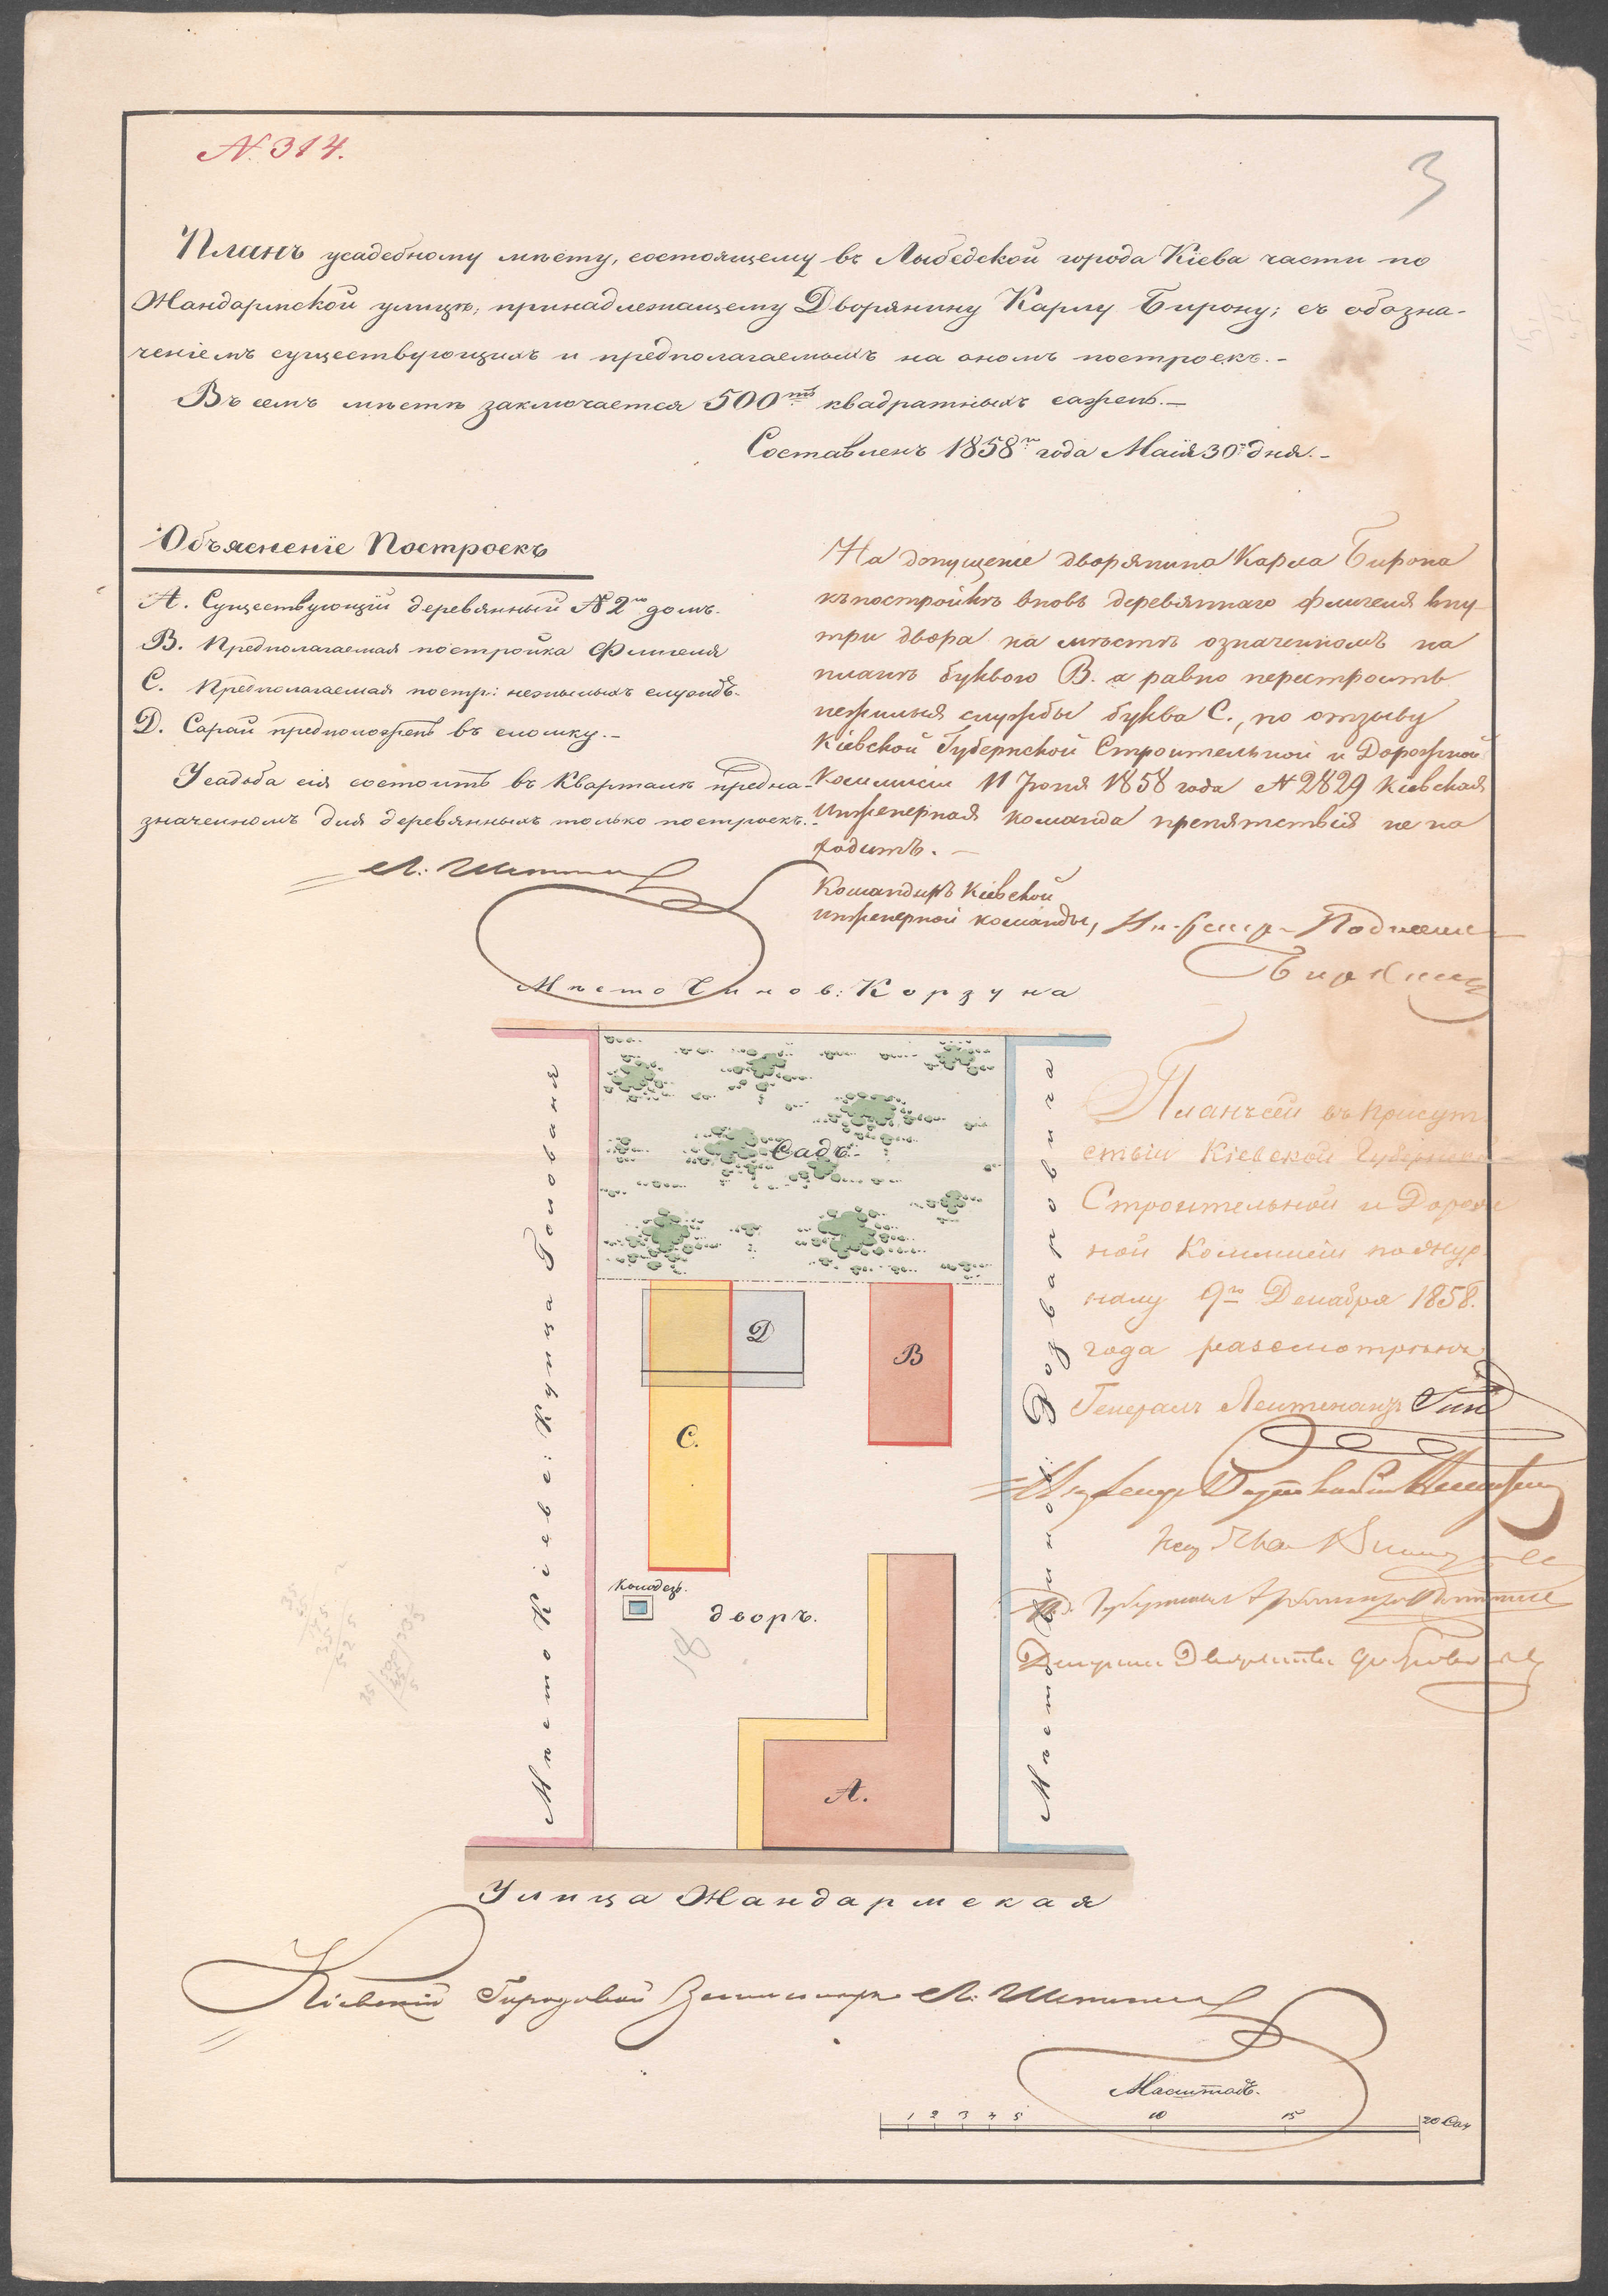 N. 314.
3
Планъ усадебному мѣсту, состоящему въ Лыбедской города Кіева части по
Жандармской улицѣ, принадлежащему Дворянину Карлу Бирону; съ обозна-
ченіемъ существующихъ и предполагаемыхъ на ономъ построекъ.-
Въ семъ мѣстѣ заключается 500тъ квадратныхъ сажень.—
Составленъ 1858го года Маія 30го дня.-
Объясненіе Построекъ
А. Существующій деревянный N 2го домъ.
В. Предполагаемая постройка Флигеля
С. Предполагаемая постр: нежилыхъ службъ.
Д. Сарай предположенъ въ сломку.-
Усадьба сія состоитъ въ Кварталѣ предна-
значенномъ для деревянныхъ только построекъ.-
На допущеніе дворянина Карла Бирона
къ постройкѣ вновь деревяннаго флигеля вну-
три двора на мѣстѣ означенномъ на
планѣ буквою В. а равно перестроить
нежилыя службы буква С., по отзыву
Кіевской Губернской Строительной и Дорожной
Коммисіи 11 Іюня 1858 года N 2829 Кіевская
Инженерная команда препятствія не на
ходитъ.—
Командиръ Кіевской
инженерной команды,
Мѣсто Чинов: Корзуна
Мѣсто Кіевс: Купца
Мѣсто Чинов:
Садъ.
Д
В
С.
Колодезь.
дворъ.
18
А.
Планъ сей въ присут
ствіи Кіевской Губернской
Строительной и Дорож
ной Коммисіи по жур
налу 9го Декабря 1858.
года разсмотрѣнъ
Генералъ Лейтенантъ
Улица Жандармская
Кіевский Городовой Землемѣръ
Масштабъ.
1 2 3 4 5 10 15 20 Саж